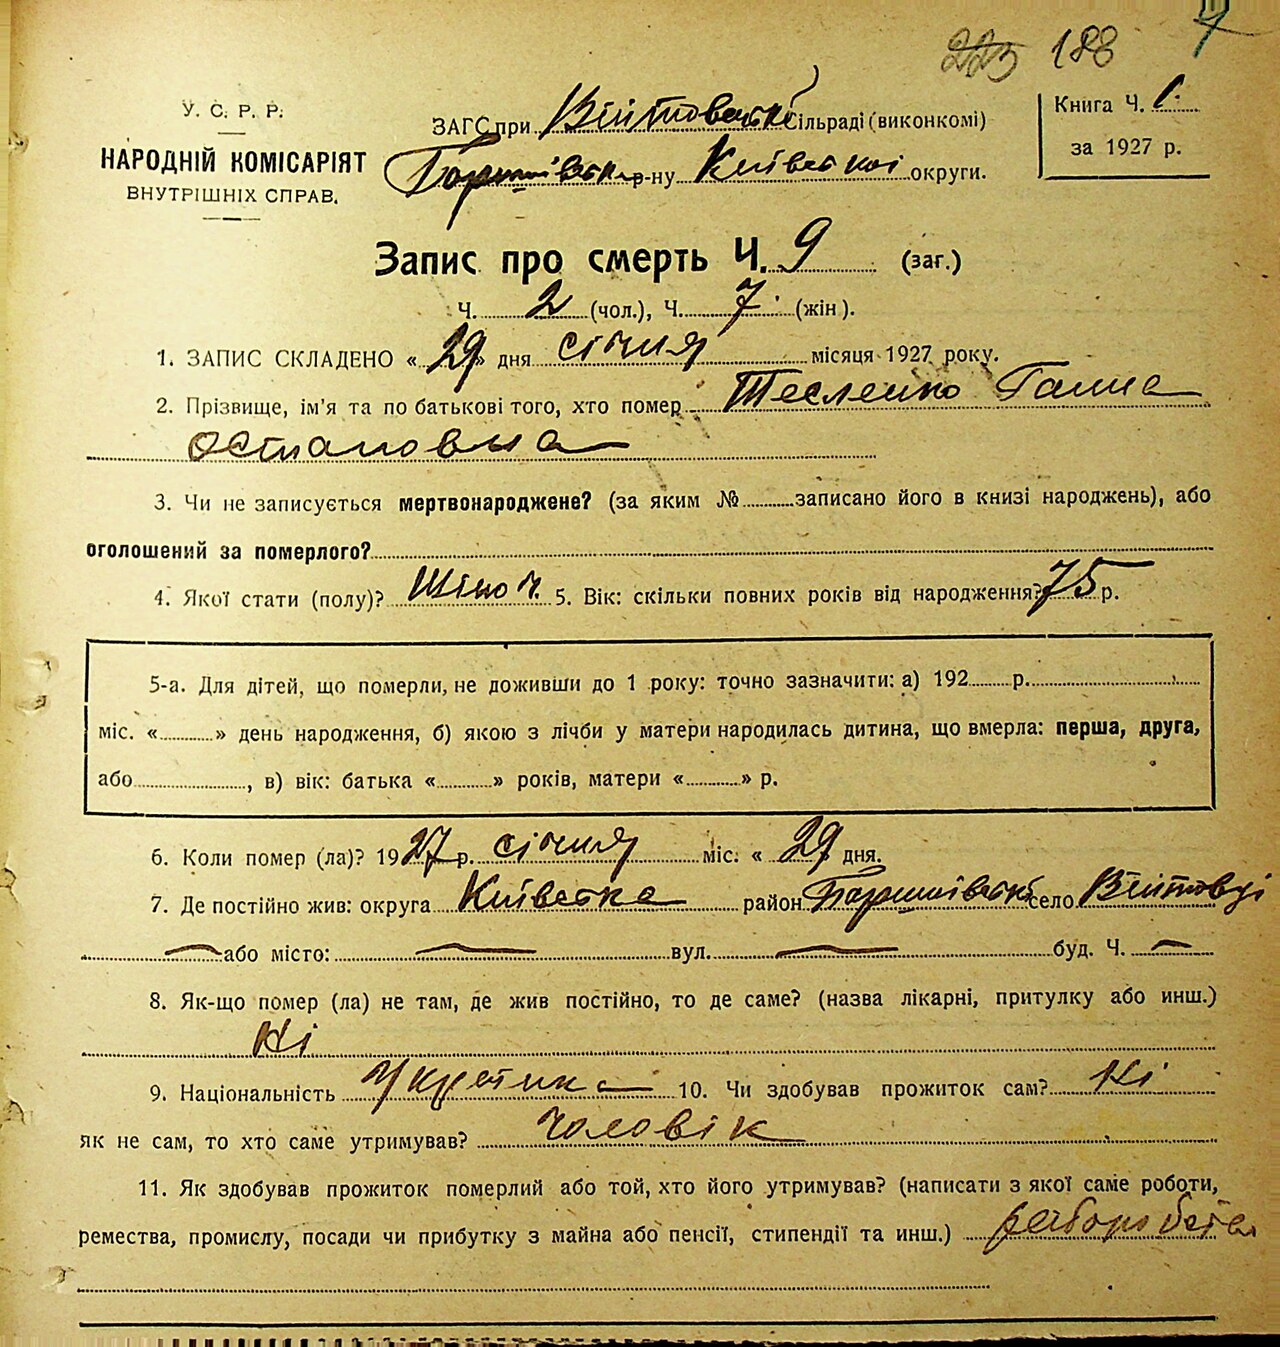 223 188 7
У. С. Р. Р.
НАРОДНІЙ КОМІСАРІЯТ
ВНУТРІШНІХ СПРАВ.
ЗАГС при Війтовецькі Сільраді (виконкомі)
Баришівськ р-ну Київської округи.
Книга Ч. 1.
за 1927 р.
Запис про смерть Ч. 9 (заг.)
Ч. 2 (чол.), Ч. 7 (жін).
1. ЗАПИС СКЛАДЕНО « 29 » дня січня місяця 1927 року.
2. Прізвище, ім'я та по батькові того, хто помер Тесленко Ганна
Остаповна
3. Чи не записується мертвонароджене? (за яким № записано його в книзі народжень), або
оголошений за померлого?
4. Якої стати (полу)? Жіноч. 5. Вік: скільки повних років від народження? 75 р.
5-а. Для дітей, що померли, не доживши до 1 року: точно зазначити: а) 192 р.
міс. « » день народження, б) якою з лічби у матери народилась дитина, що вмерла: перша, друга,
або , в) вік: батька « » років, матери « » р.
6. Коли помер (ла)? 1927 р. січня міс. « 29 дня.
7. Де постійно жив: округа Київська район Баришівськ село Війтовці
або місто: вул. буд. Ч.
8. Як-що помер (ла) не там, де жив постійно, то де саме? (назва лікарні, притулку або инш.)
Ні
9. Національність 10. Чи здобував прожиток сам? Ні
як не сам, то хто саме утримував? чоловік
11. Як здобував прожиток померлий або той, хто його утримував? (написати з якої саме роботи,
ремества, промислу, посади чи прибутку з майна або пенсії, стипендії та инш.)